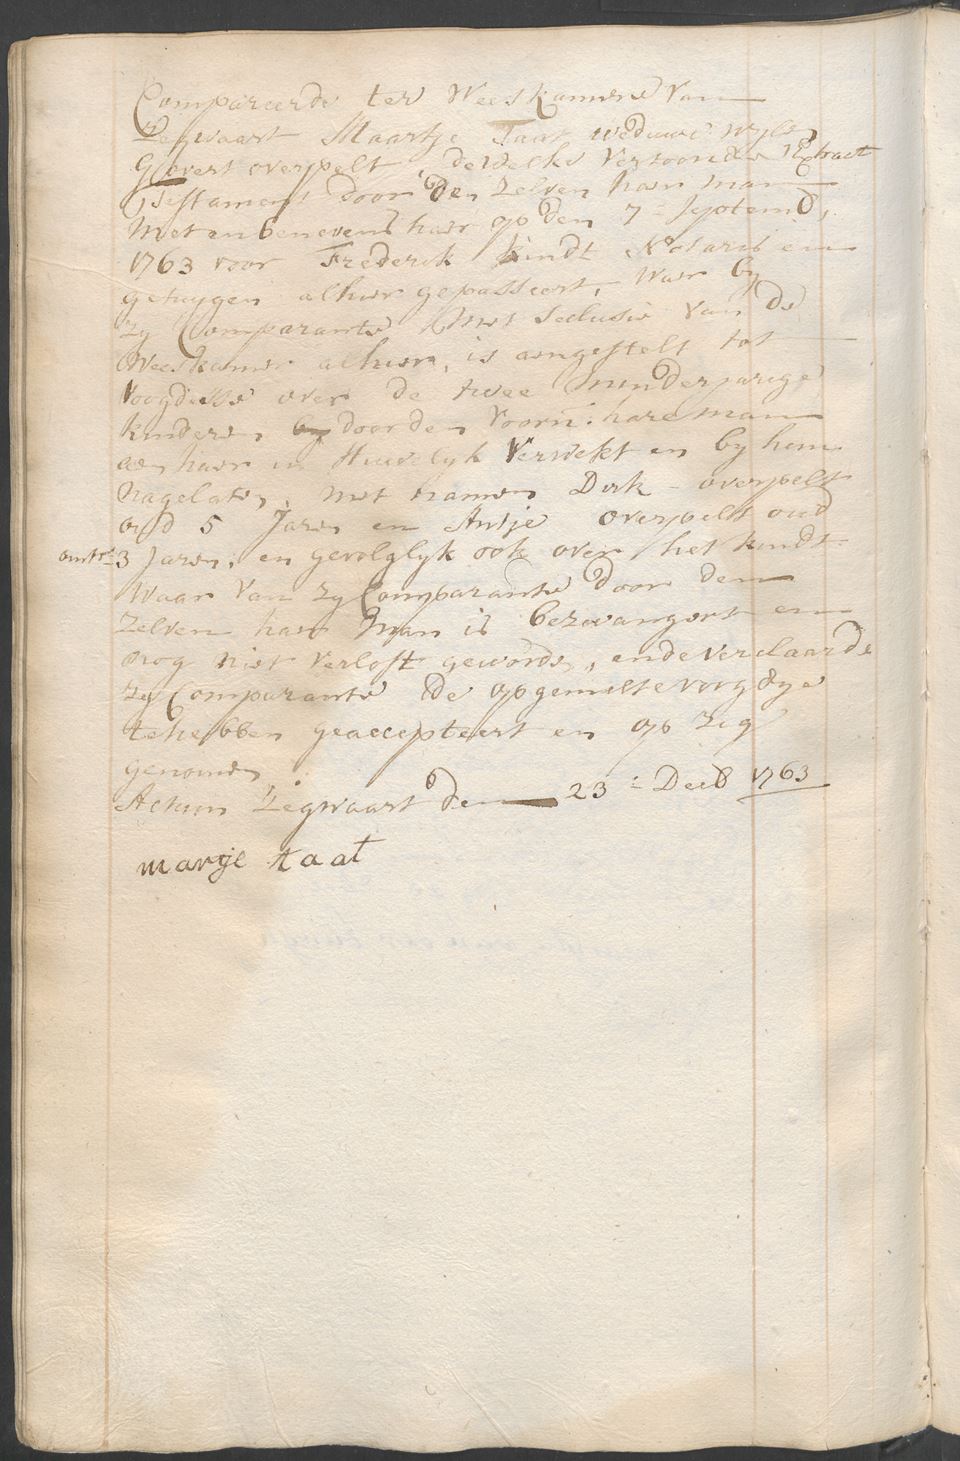 Compareerde ter Weeskamere van
Zegwaert Maartje Taat weduwe wyle
Govert overpelt dewelke vertoonde Extract
Testament door den Zelven haer man
met en benevens haer op den 7e Septemb,
1763 voor Frederik kindt Notaris en
getuygen alhier gepasseert, waer by
zy Comparante met Seclusie van de
Weeskamer alhier, is aengestelt tot
voogdesse over de twee minderjarige
kinderen by door den voorn: hare man
aen haer in Huwelyk verwekt en by hem
nagelaten, met namen Dirk overpelt
oud 5 Jaren en Antje overpelt oud
omtr: 3 Jaren, en gevolglyk ook over het kindt
Waar van zy Comparante door den
Zelven haer man is bezwangert en
nog niet verlost geworden, ende verclaarde
zy Comparante de opgemelte voogdye
te hebben geaccepteert en op zig
genomen
Actum Zegwaart den 23e Decb 1763
marije taat